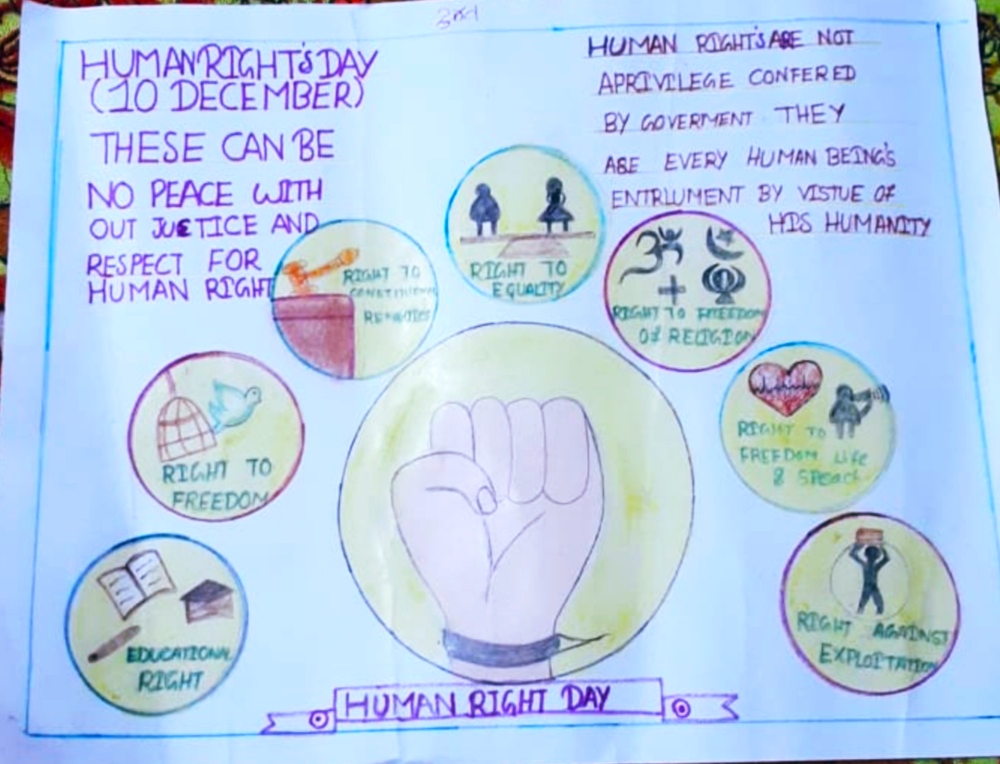 HUMAN RIGHT'S DAY
(10 DECEMBER)
THESE CAN BE
NO PEACE WITH
OUT JUSTICE AND
RESPECT FOR
HUMAN RIGHT
HUMAN RIGHT'S ARE NOT
APRIVILEGE CONFERED
BY GOVERMENT THEY
ARE EVERY HUMAN BEING'S
ENTRLUMENT BY VISTUE OF
HIS HUMANITY
RIGHT TO
EQUALITY
RIGHT TO
RIGHT TO FREEDOM
OF RELIGION
RIGHT TO
FREEDOM
RIGHT TO
FREEDOM Life
& SPeach
EDUCATIONAL
RIGHT
RIGHT AGAINST
EXPLOITATION
HUMAN RIGHT DAY